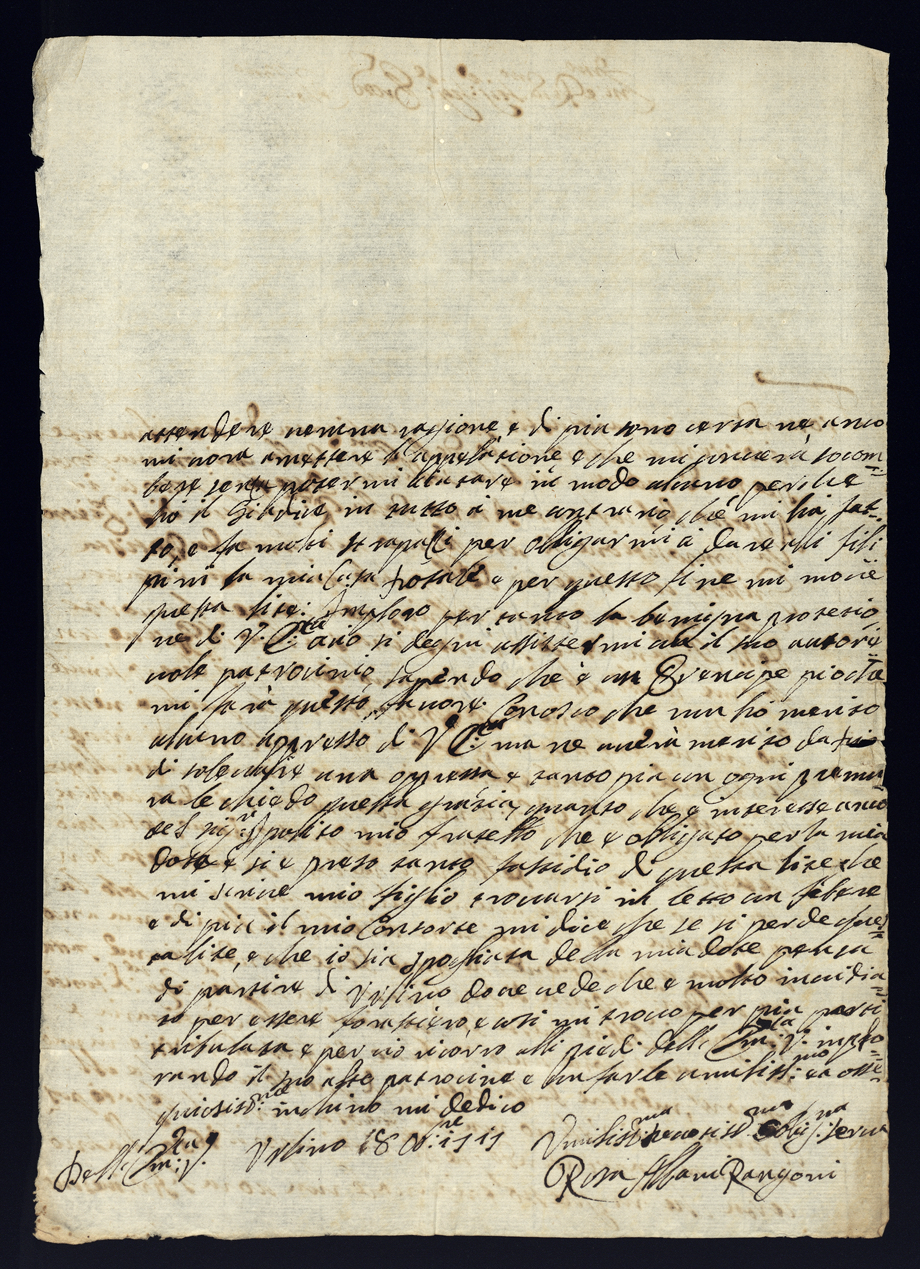 attendere neniuna ragione e di piu sono certa ne anco
mi vora amettere l'appelatione e che mi
bere senza potermi aiutare in modo alcuno perche
ho il Giudice in tutto a me contrario che mi ha fat-
to, e fa molti strapazzi per obligarmi a dare alli fili
pini la mia Casa e per questo fine mi move
questa lite: Imploro per tanto la benigna protetio
ne di V. Em:za acio si degni assistermi con il suo autore
vole patrocinio sapendo che è un Prencipe pio che
mi farà questo favore. Conosco che non ho merito
alcuno appresso di V. Em:za ma ne averà merito da
di solevare una oppressa e tanto piu con ogni premu
ra le chiedo questa gratia, quanto che è interesse anco
del sig:r Ipolito mio fratello che è obligato per la mia
dote e si è preso tanto fastidio di questa lite che
mi scrive mio figlio trovarsi in letto con febre
e di piu il mio Consorte mi dice che se si perde ques
ta lite, e che io sia spogliata della mia dote pensa
di partire di Urbino dove vede che è molto invidia
to per essere forastiero, e cosi mi trovo per piu parti
tribulata e per cio ricorro alli piedi dell' Em:za V. implo
rando il suo alto patrocinio e con farle umiliss:mo et osse
quiosiss:mo inchino mi dedico
Dell' Em:za V. Urbino 18 1717 Umiliss:ma devotiss:ma Oblig:ma serva
Rosa Albani Rangoni